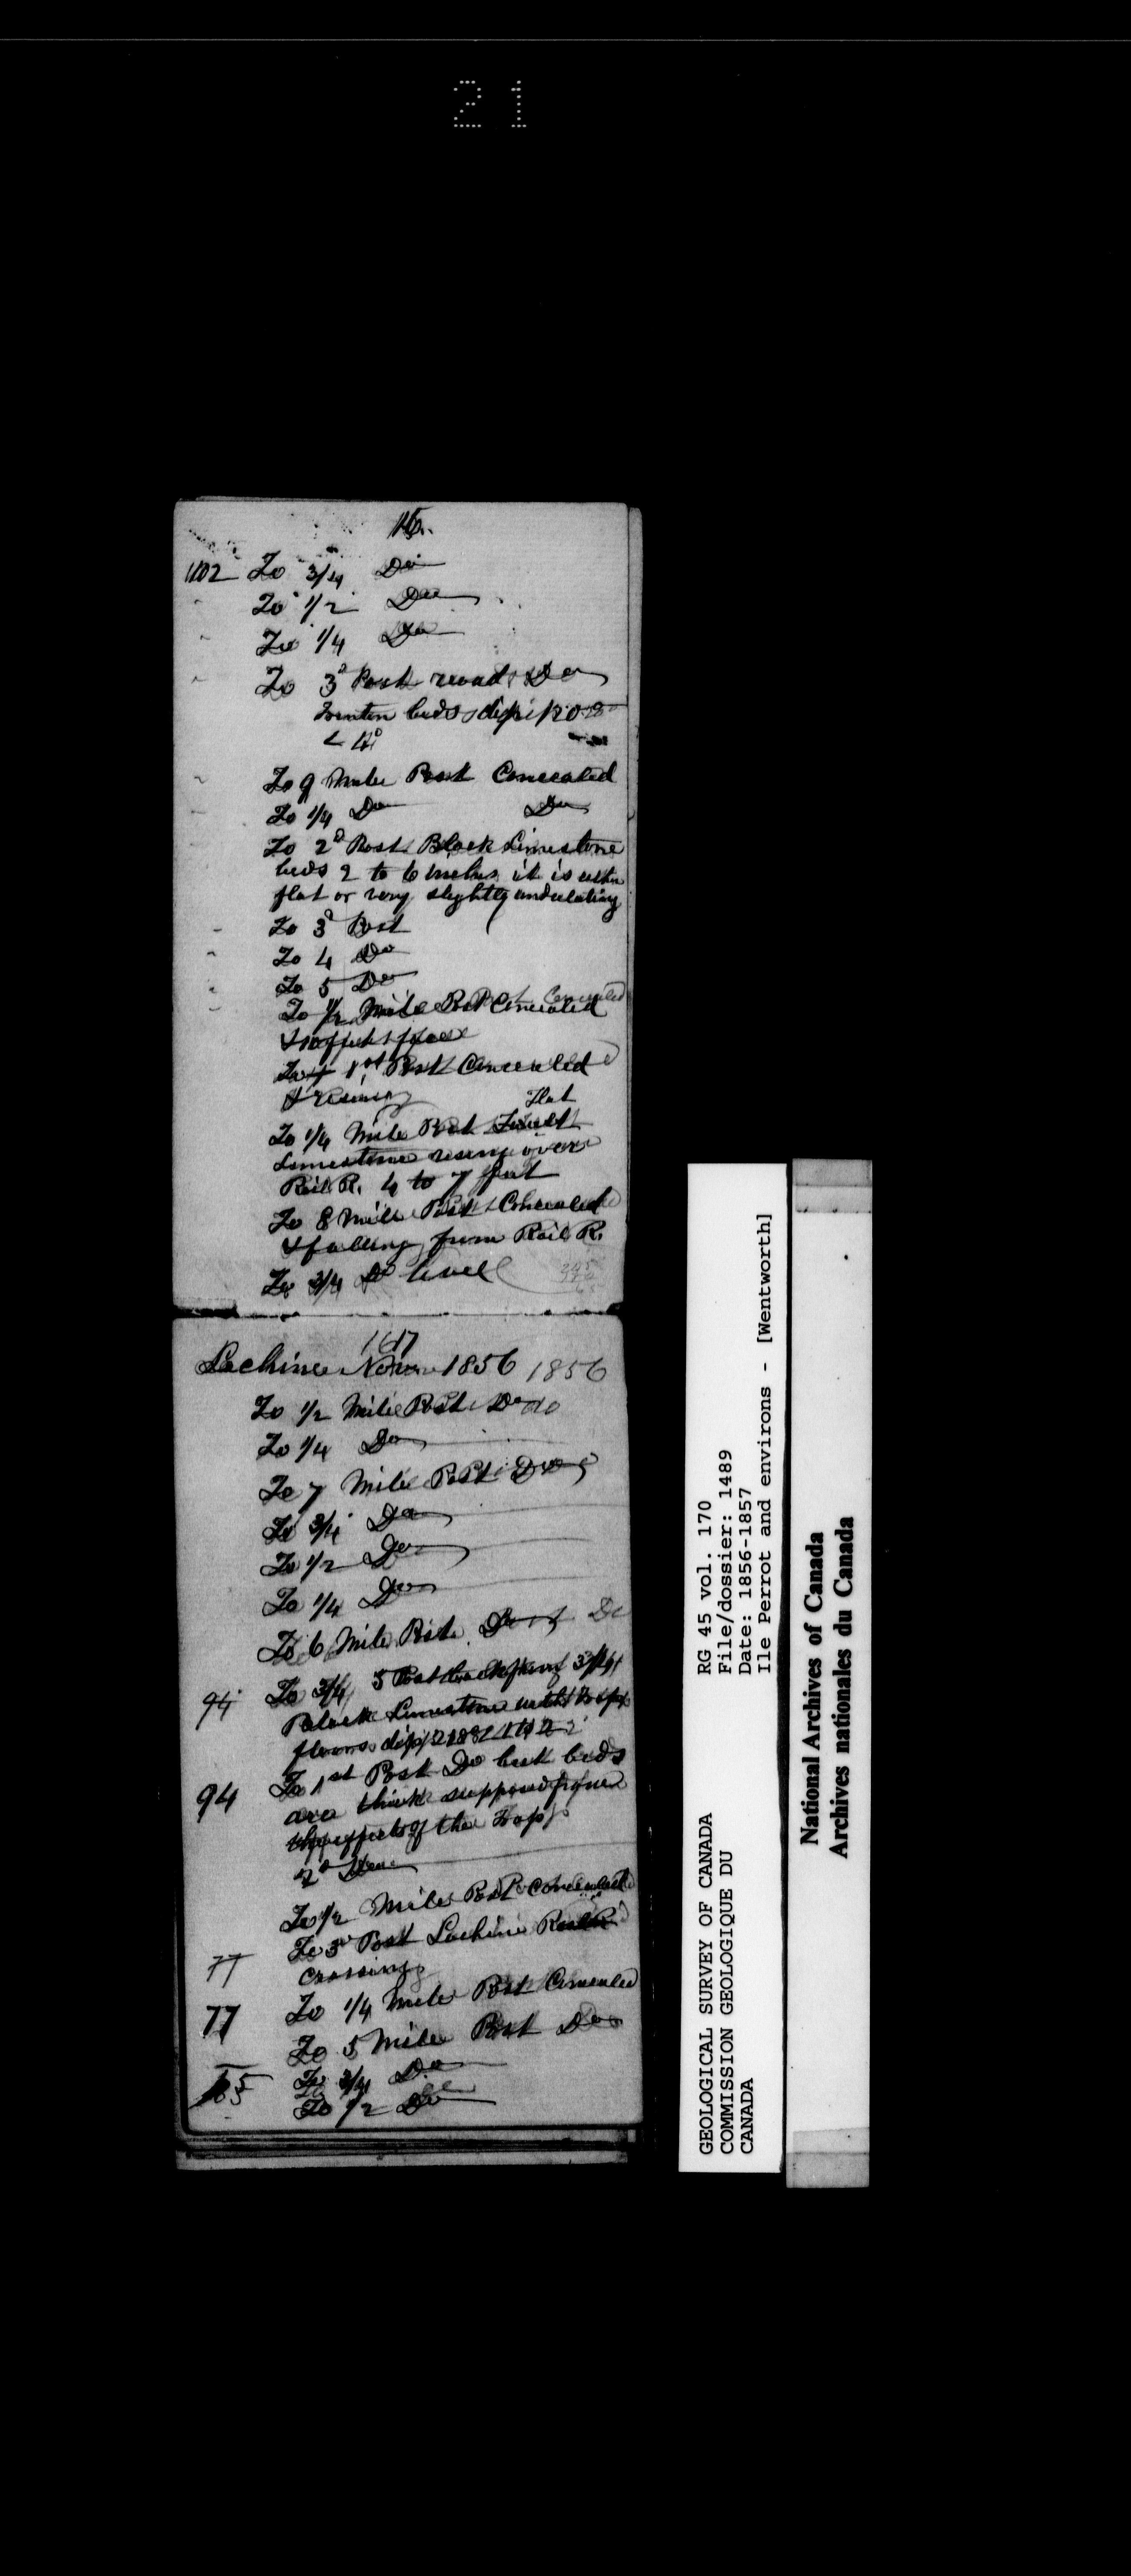 21
16.
1102 To 3/4 Do
To 1/2 Do
To 1/4 Do
To 3d Post road Do
Trenton beds dip
< 4°
To 9 Mile Post Concealed
To 1/4 Do Do
To 2d Post Black Limestone
beds 2 to 6 inches it is either
flat or very slightly undulating
To 3d Post
To 4 Do
To 5 Do
To 1/2 Mile Post Concealed
To 1st Post Concealed
& rising Flat
To 1/4 Mile Post
Limestone rising over
Rail R. 4 to 7 feet
To 8 Mile Post Concealed
& falling from Rail R.
To 3/4 Do level
17
Lachine Novr 1856 1856
To 1/2 Mile Post Do do
To 1/4 Do
To 7 Mile Post Do
To 3/4 Do
To 1/2 Do
To 1/4 Do
To 6 Mile Post Do Do
94 To 3/4 5 Post back from 3/4
Black Limestone with Trap
floors dip
94 To 1st Post Do but beds
are thick supposed from
the effects of the Trap
2d Do
To 1/2 Mile Post Concealed
77 To 3d Post Lachine Rail R
crossing
77 To 1/4 Mile Post Concealed
To 5 Mile Post Do
To 3/4 Do
To 1/2 Do
GEOLOGICAL SURVEY OF CANADA RG 45 vol. 170
COMMISSION GEOLOGIQUE DU File/dossier: 1489
CANADA Date: 1856-1857
Ile Perrot and environs - [Wentworth]
National Archives of Canada
Archives nationales du Canada